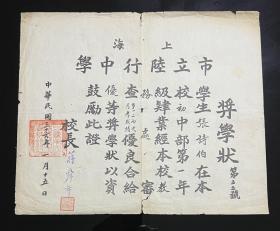 上海
市立陸行中學
獎學狀
第 號
學生張詩伯在本
校初中部第一年
級肄業經本校教
務處審
查 優良合給
優等獎學狀以資
鼓勵此證
校長
中華民國三十六年一月十五日